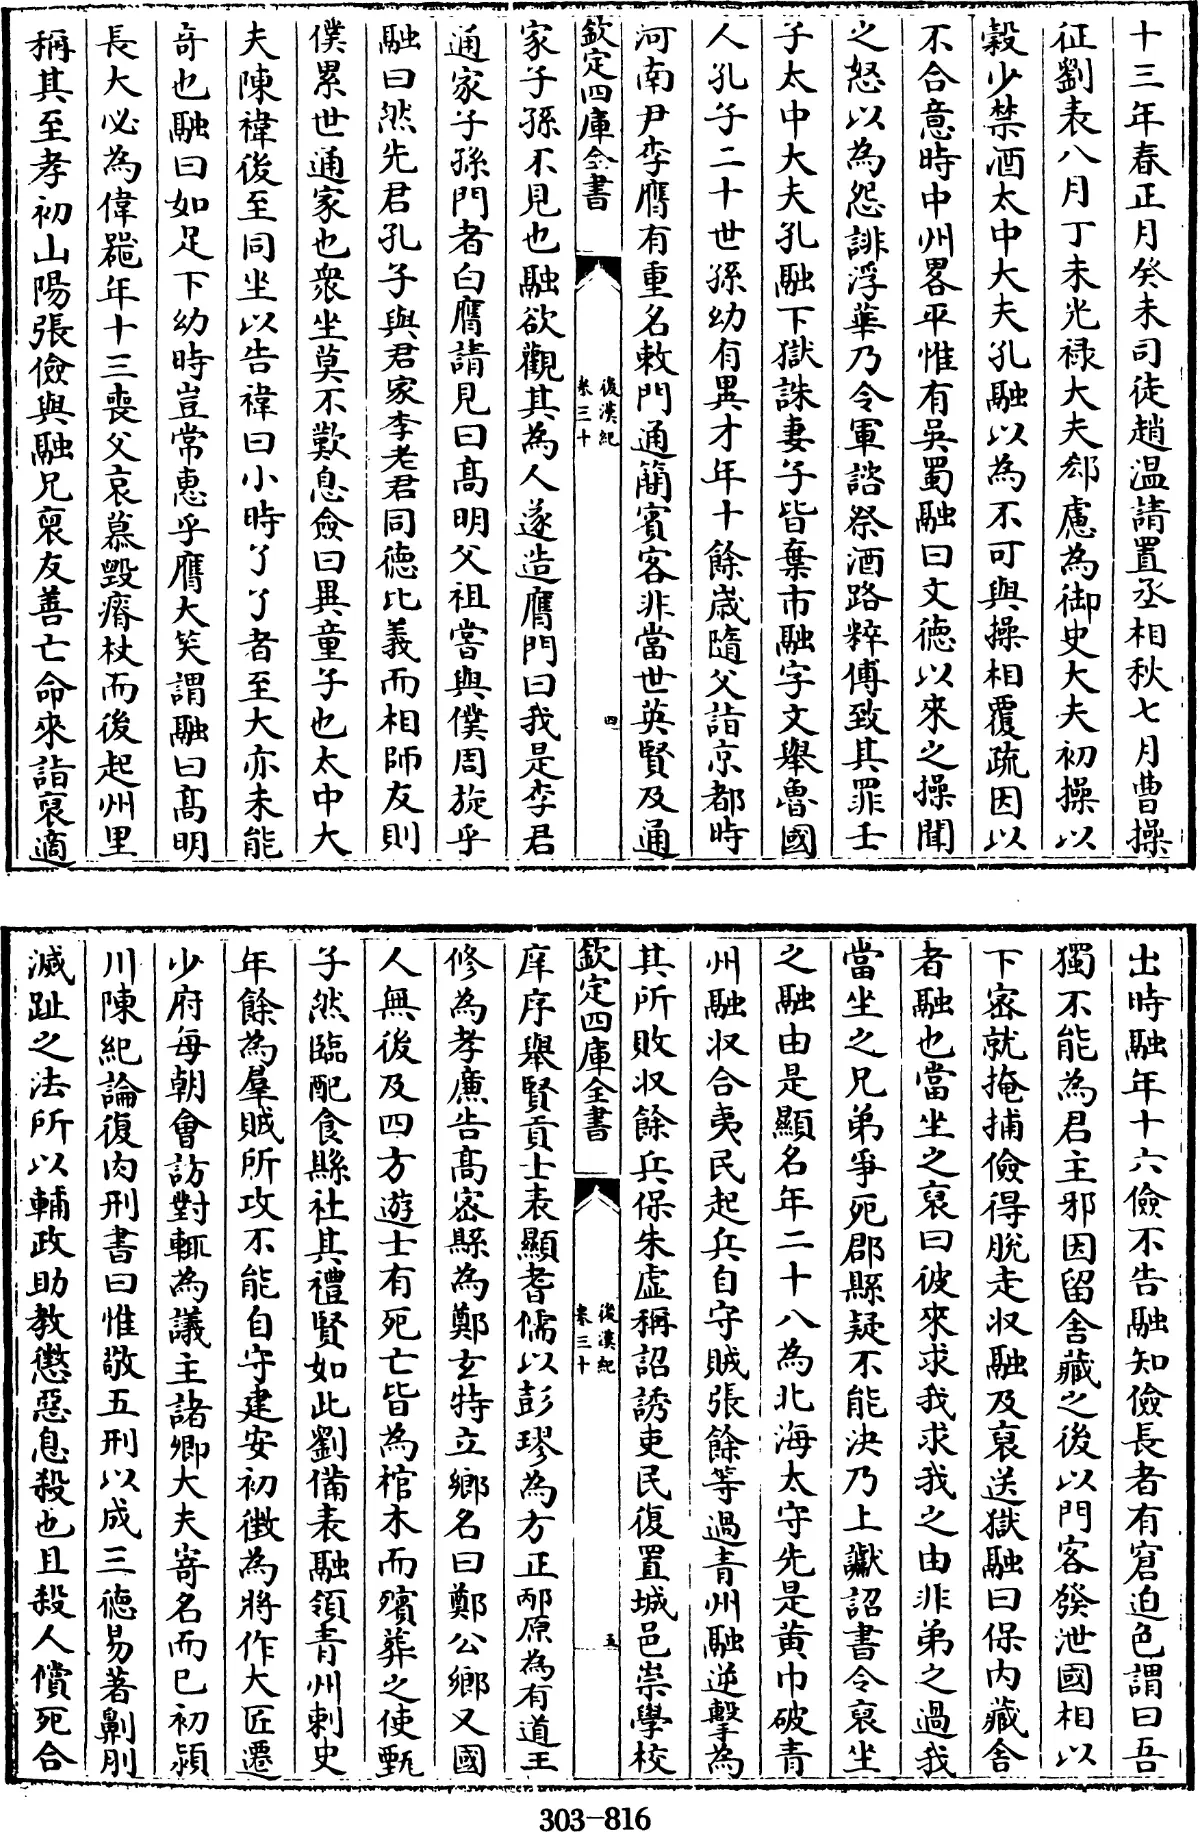 十三年春正月癸未司徒趙温請置丞相秋七月曹操
征劉表八月丁未光禄大夫郄慮為御史大夫初操以
穀少禁酒太中大夫孔融以為不可與操相覆疏因以
不合意時中州畧平惟有吳蜀融曰文德以來之操聞
之怒以為怨誹浮華乃令軍諮祭酒路粹傅致其罪壬
子太中大夫孔融下獄誅妻子皆棄市融字文舉魯國
人孔子二十世孫幼有異才年十餘嵗隨父詣京都時
河南尹李膺有重名敕門通簡賓客非當世英賢及通
欽定四庫全書
後漢紀
卷三十
四
家子孫不見也融欲觀其為人遂造膺門曰我是李君
通家子孫門者白膺請見曰髙明父祖嘗與僕周旋乎
融曰然先君孔子與君家李老君同德比義而相師友則
僕累世通家也衆坐莫不歎息僉曰異童子也太中大
夫陳禕後至同坐以告禕曰小時了了者至大亦未能
奇也融曰如足下幼時豈常惠乎膺大笑謂融曰髙明
長大必為偉器年十三喪父哀慕毁瘠杖而後起州里
稱其至孝初山陽張儉與融兄裒友善亡命來詣裒適
出時融年十六儉不告融知儉長者有窘迫色謂曰吾
獨不能為君主邪因留舍藏之後以門客發泄國相以
下宻就掩捕儉得脱走収融及裒送獄融曰保内藏舍
者融也當坐之裒曰彼來求我求我之由非弟之過我
當坐之兄弟爭死郡縣疑不能決乃上讞詔書令裒坐
之融由是顯名年二十八為北海太守先是黄巾破青
州融収合夷民起兵自守賊張餘等過青州融逆擊為
其所敗収餘兵保朱虚稱詔誘吏民復置城邑崇學校
欽定四庫全書
後漢紀
卷三十
五
庠序舉賢貢士表顯耆儒以彭璆為方正邴原為有道王
修為孝廉告髙宻縣為鄭玄特立鄉名曰鄭公鄉又國
人無後及四方遊士有死亡皆為棺木而殯葬之使甄
子然臨配食縣社其禮賢如此劉備表融領青州刺史
年餘為羣賊所攻不能自守建安初徴為將作大匠遷
少府每朝會訪對輒為議主諸卿大夫寄名而已初潁
川陳紀論復肉刑書曰惟敬五刑以成三德易著劓刖
滅趾之法所以輔政助教懲惡息殺也且殺人償死合
303-816